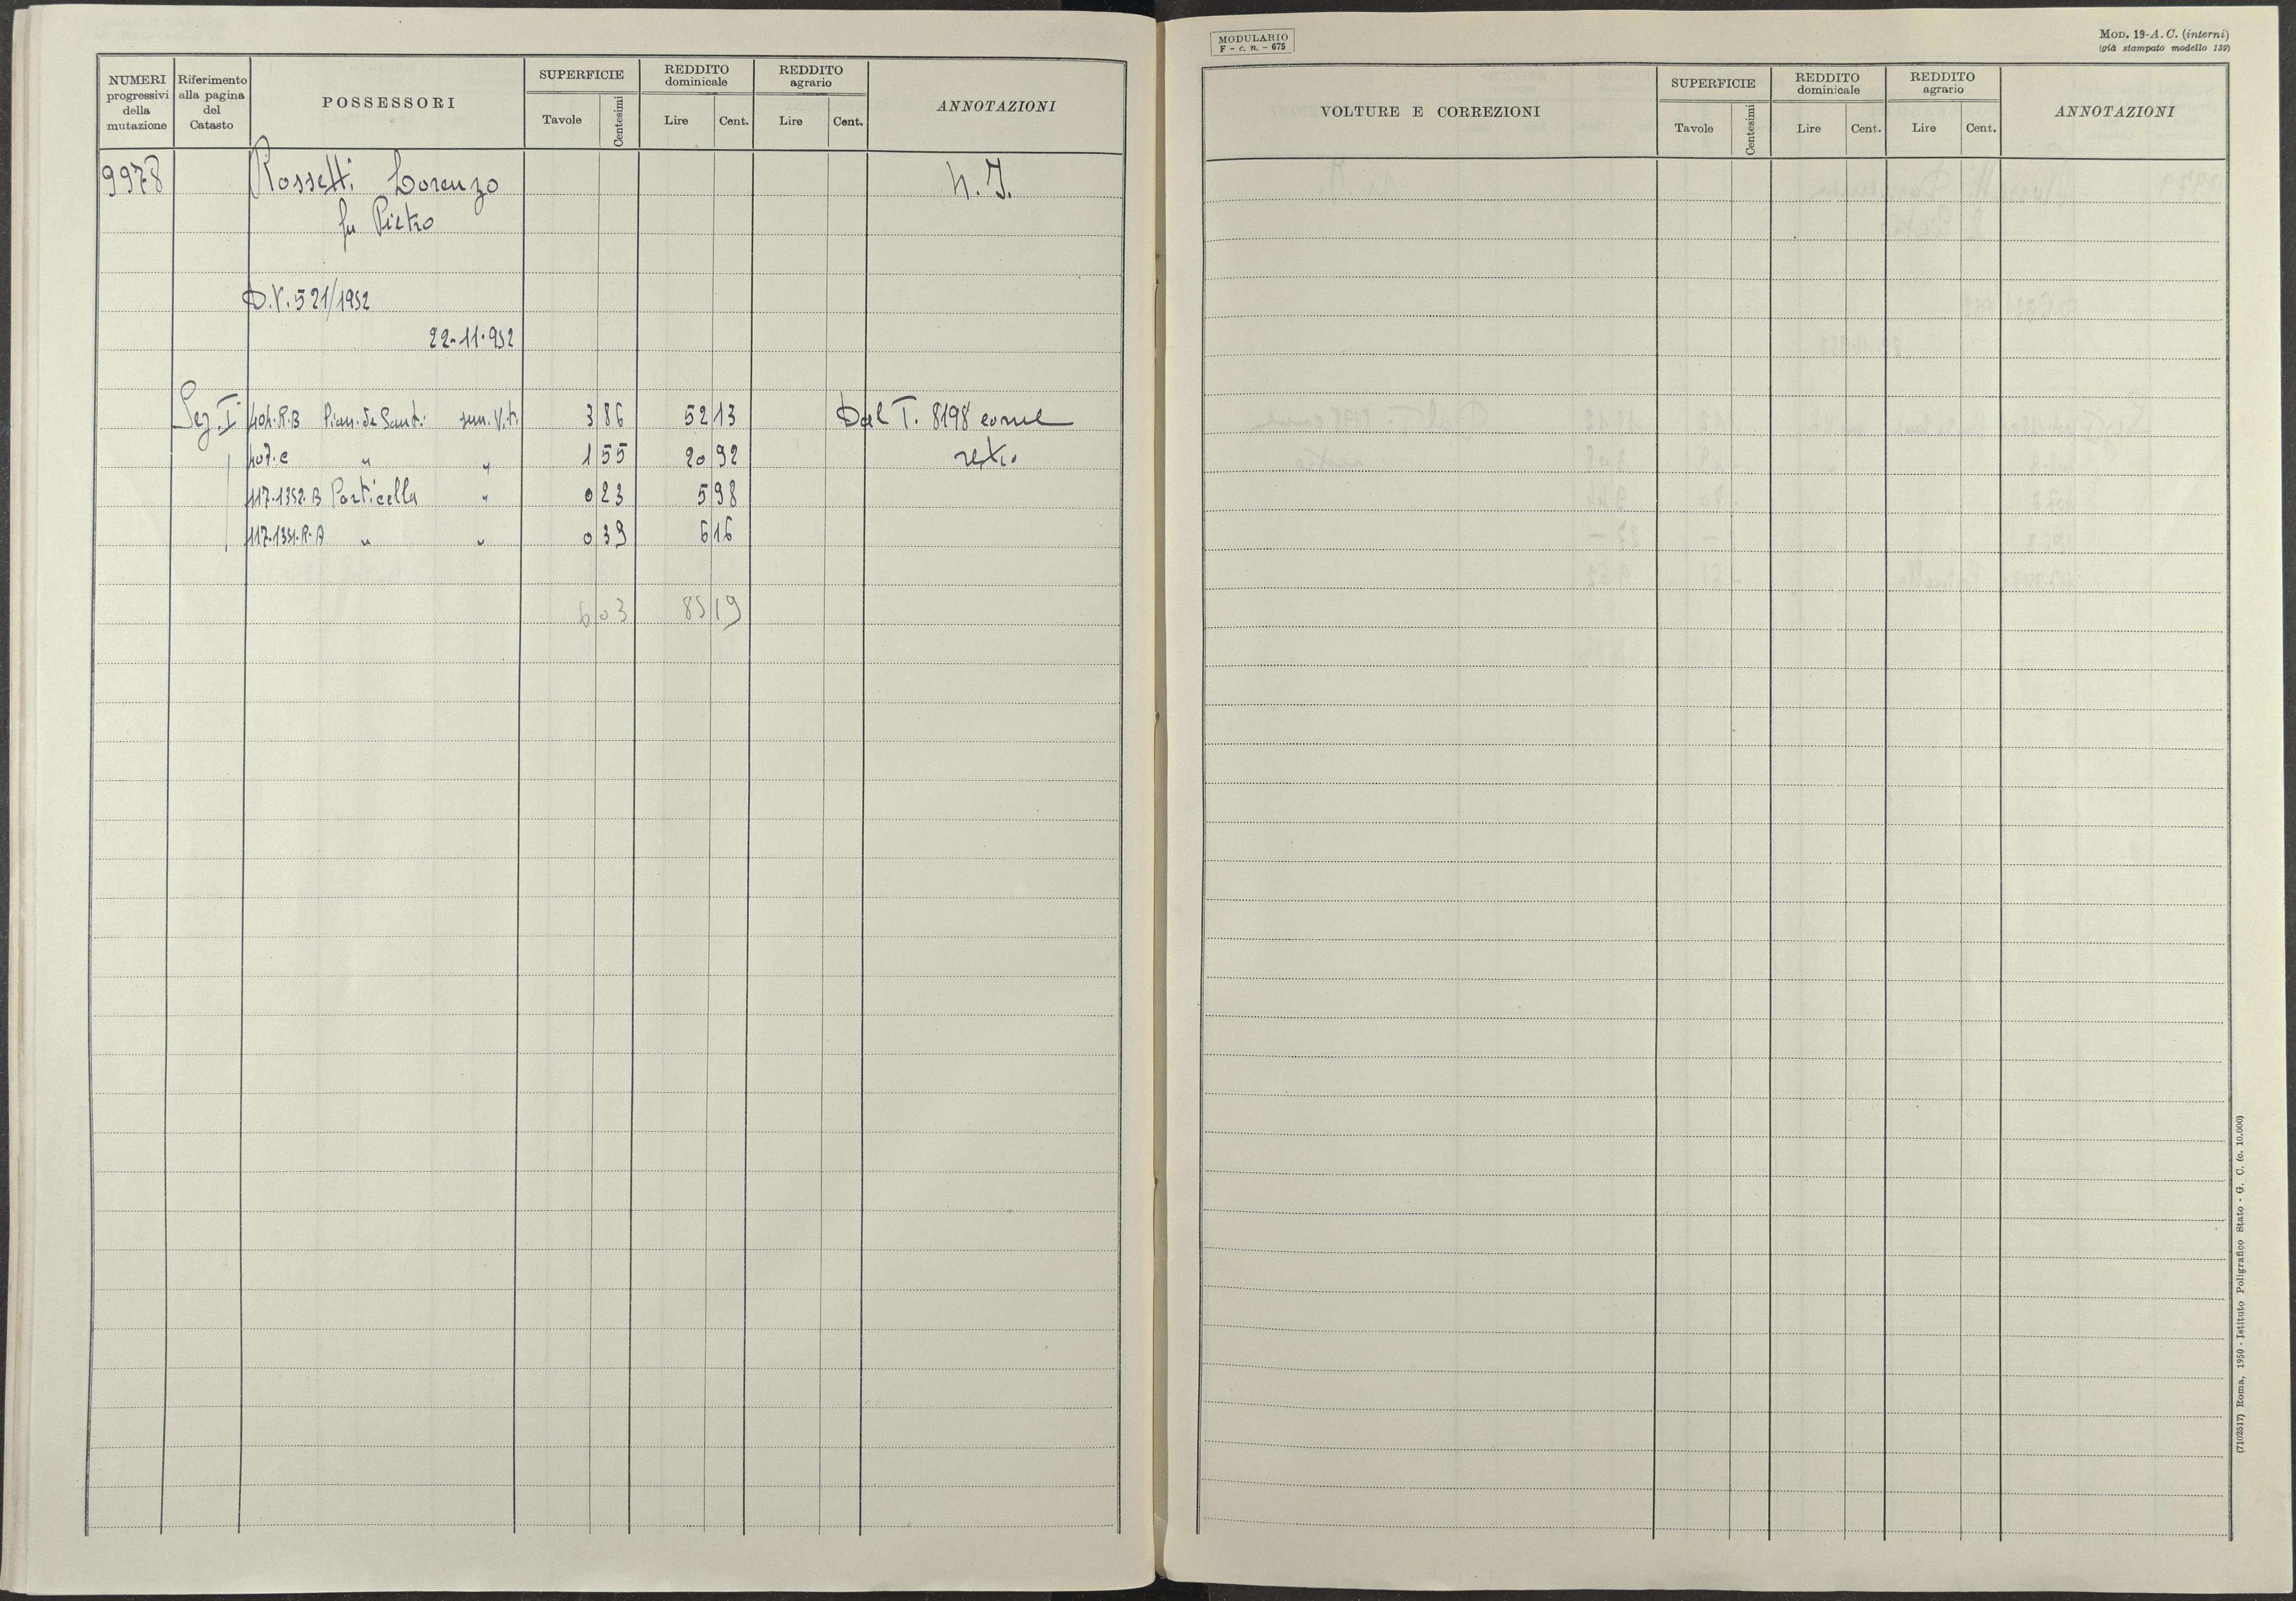 NUMERI progressivi della mutazione
Riferimento alla pagina del Catasto
POSSESSORI
SUPERFICIE
Tavole Centesimi
REDDITO dominicale
Lire Cent.
REDDITO agrario
Lire Cent.
ANNOTAZIONI
9978 Rossetti Lorenzo N. I.
fu Pietro
D.V. 521/1952
22-11-952
Sez. I 404.R.B Pian. da Sant. sem. Vit. 3 86 52 13 Dal T. 8198 come
407.c " " 1 55 20 92 retro
117.1352.B Porticella " 0 23 5 98
117.1351.R.A " " 0 39 6 16
6 03 85 19
MODULARIO
F - c. n. - 675
MOD. 19-A. C. (interni)
(già stampato modello 139)
VOLTURE E CORREZIONI
SUPERFICIE
Tavole Centesimi
REDDITO dominicale
Lire Cent.
REDDITO agrario
Lire Cent.
ANNOTAZIONI
(7102517) Roma, 1950 - Istituto Poligrafico Stato - G. C. (c. 10.000)